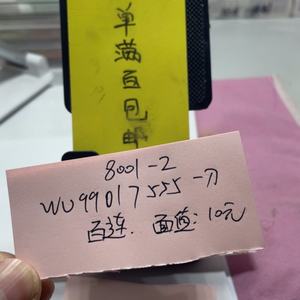 单满百包邮
8001-2
WU99017555-刀
百连. 面值:10元